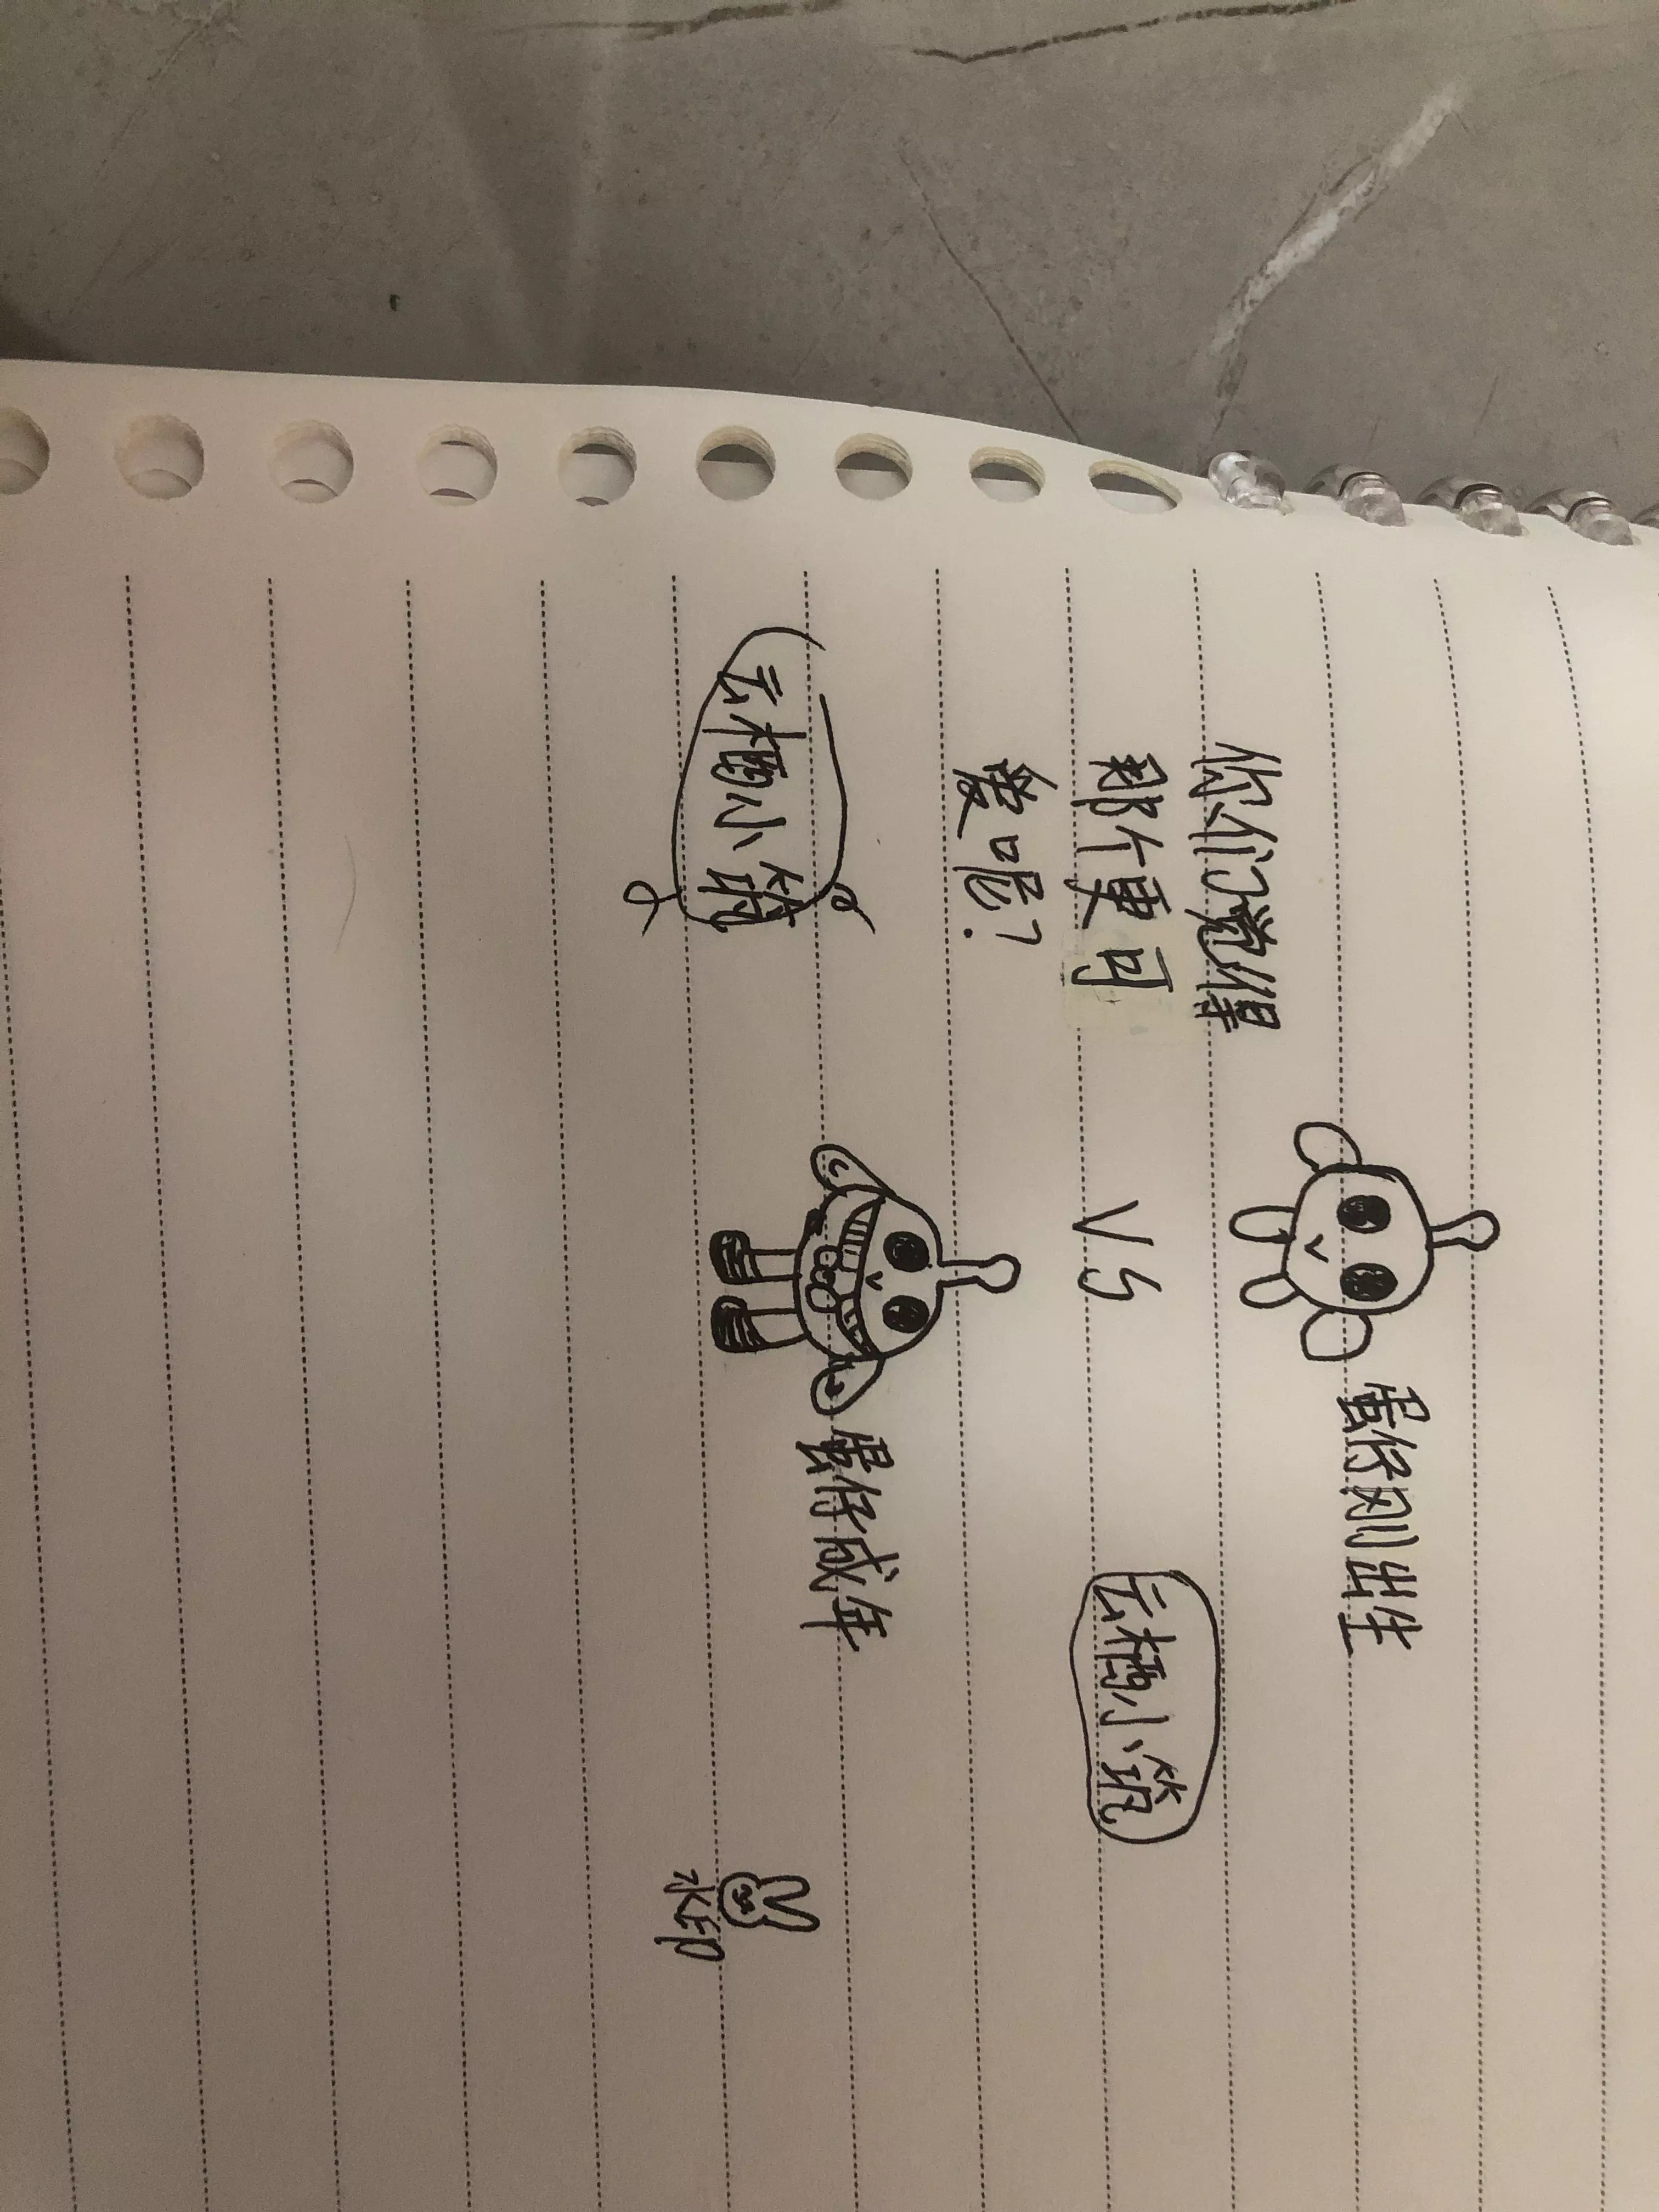 蛋仔刚出生
你们觉得
那个更可
爱呢?
VS
云栖小筑
蛋仔成年
云栖小筑
水印